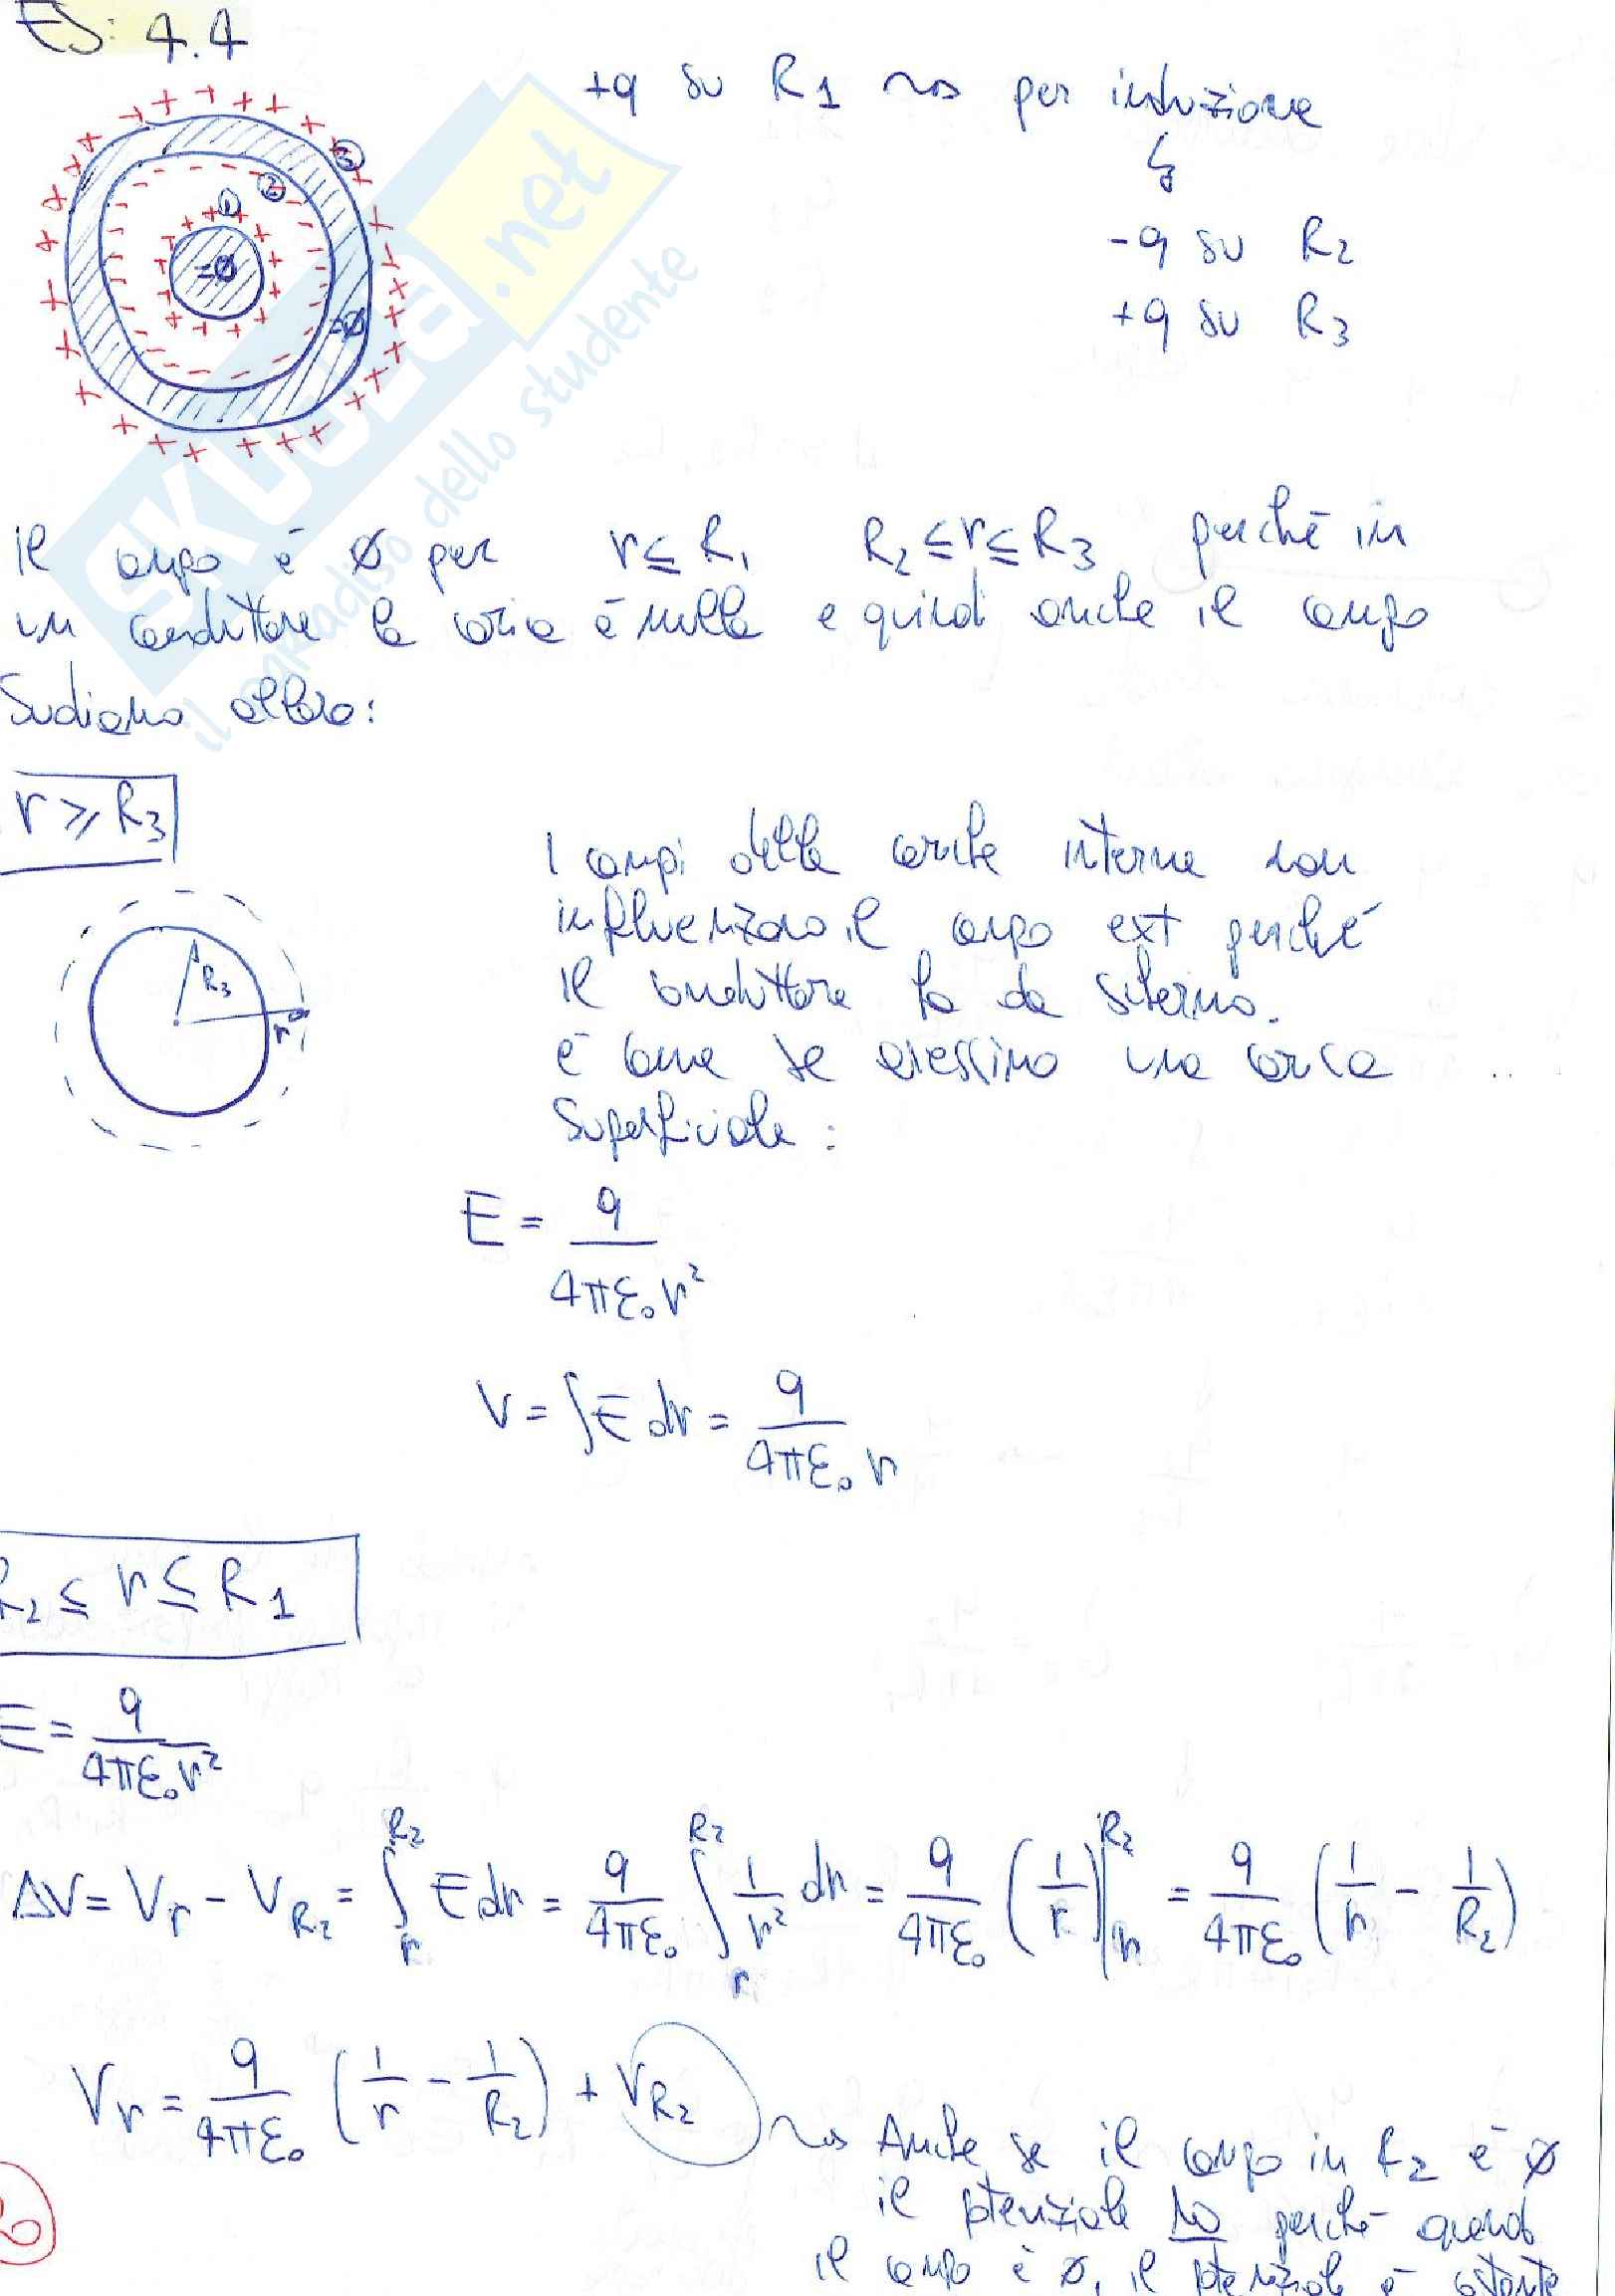 ES: 4.4
+q su R1 ~> per induzione
-q su R2
+q su R3
+ + + + +
- - - - -
1
2
3
=Ø
=Ø
SKUOLA.net
il paradiso dello studente
Il campo è Ø per r ≤ R1 R2 ≤ r ≤ R3 perchè in
un conduttore la carica è nulla e quindi anche il campo
Sudiamo allora:
r ≥ R3
R3
r
I campi delle cariche interne non
influenzano il campo ext perchè
il conduttore fa da schermo.
È come se avessimo una carica
superficiale:
E = q / 4πε0r²
V = ∫E dr = q / 4πε0 r
R2 ≤ r ≤ R1
E = q / 4πε0r²
ΔV = Vr - VR2 = ∫_r^R2 E dr = q/4πε0 ∫_r^R2 1/r² dr = q/4πε0 (1/r)|_r^R2 = q/4πε0 (1/r - 1/R2)
Vr = q/4πε0 (1/r - 1/R2) + VR2 ~> Anche se il campo in R2 è Ø
il potenziale NO perchè quando
il campo è Ø, il potenziale è costante